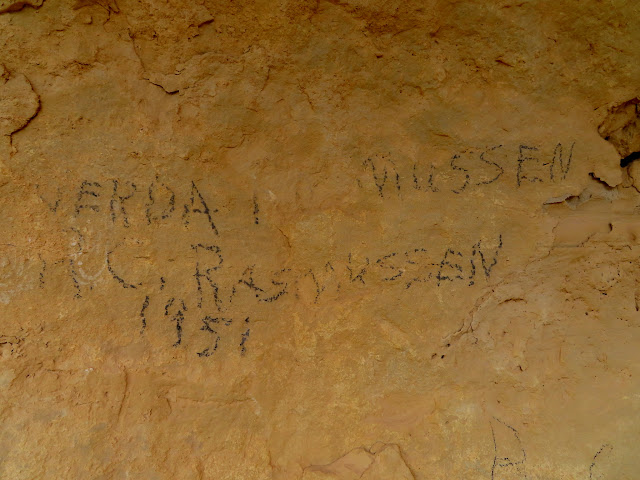 VERDA MUSSEN
C. RASMUSSEN
1951